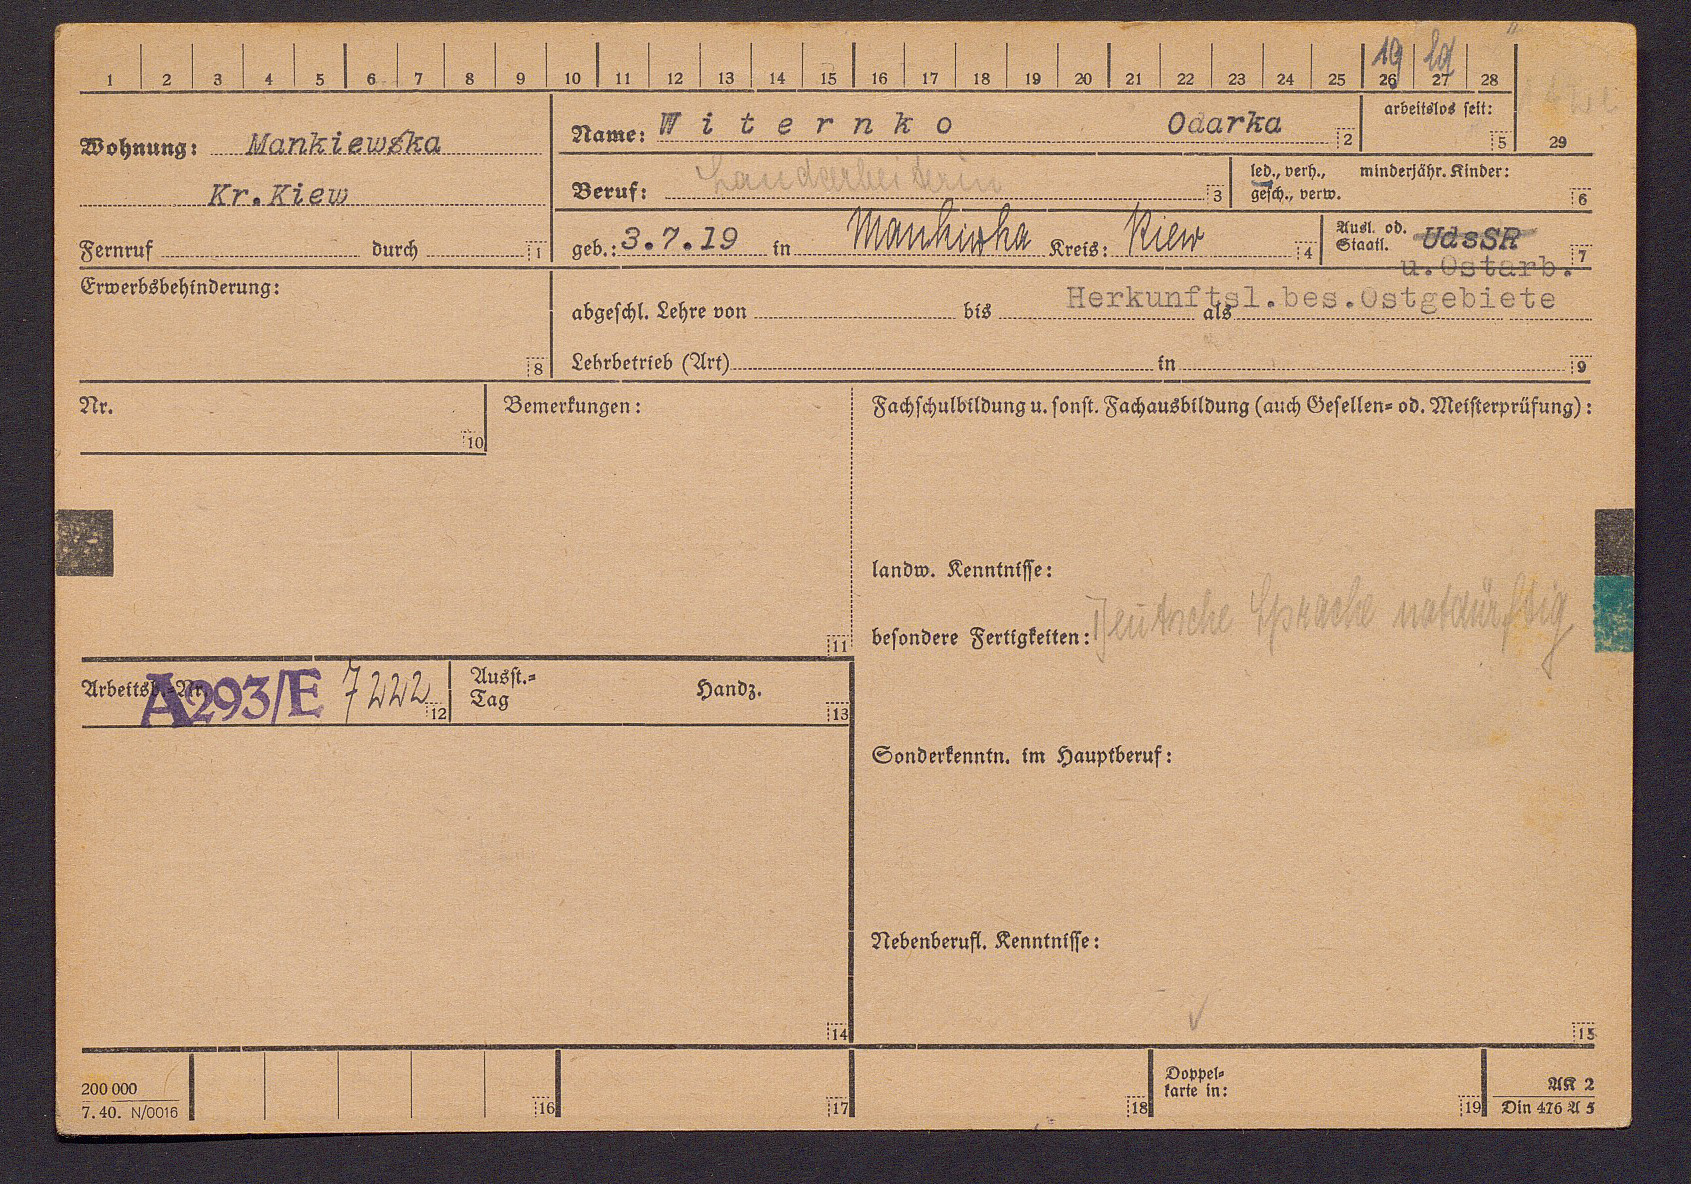 19 La
1 2 3 4 5 6 7 8 9 10 11 12 13 14 15 16 17 18 19 20 21 22 23 24 25 26 27 28
Wohnung: Mankiewska
Kr.Kiew
Fernruf durch 1
Name: Witernko Odarka 2
arbeitslos seit: 5
29
Beruf: Landarbeiterin 3
led., verh., minderjähr. Kinder:
gesch., verw. 6
geb.: 3.7.19 in Mankiwka Kreis: Kiew 4
Ausl. od.
Staatl. UdsSR 7
u.Ostarb.
Herkunftsl.bes.Ostgebiete
Erwerbsbehinderung:
8
abgeschl. Lehre von bis als
Lehrbetrieb (Art) in 9
Nr.
10
Bemerkungen:
11
Fachschulbildung u. sonst. Fachausbildung (auch Gesellen= od. Meisterprüfung):
landw. Kenntnisse:
besondere Fertigkeiten: Deutsche Sprache notdürftig
Arbeitsb.=Nr. A293/E 7222 12
Ausst.=
Tag Handz.
13
Sonderkenntn. im Hauptberuf:
Nebenberufl. Kenntnisse:
14
15
200 000
7. 40. N/0016
16
17
18
Doppel=
karte in:
19
AK 2
Din 476 A 5